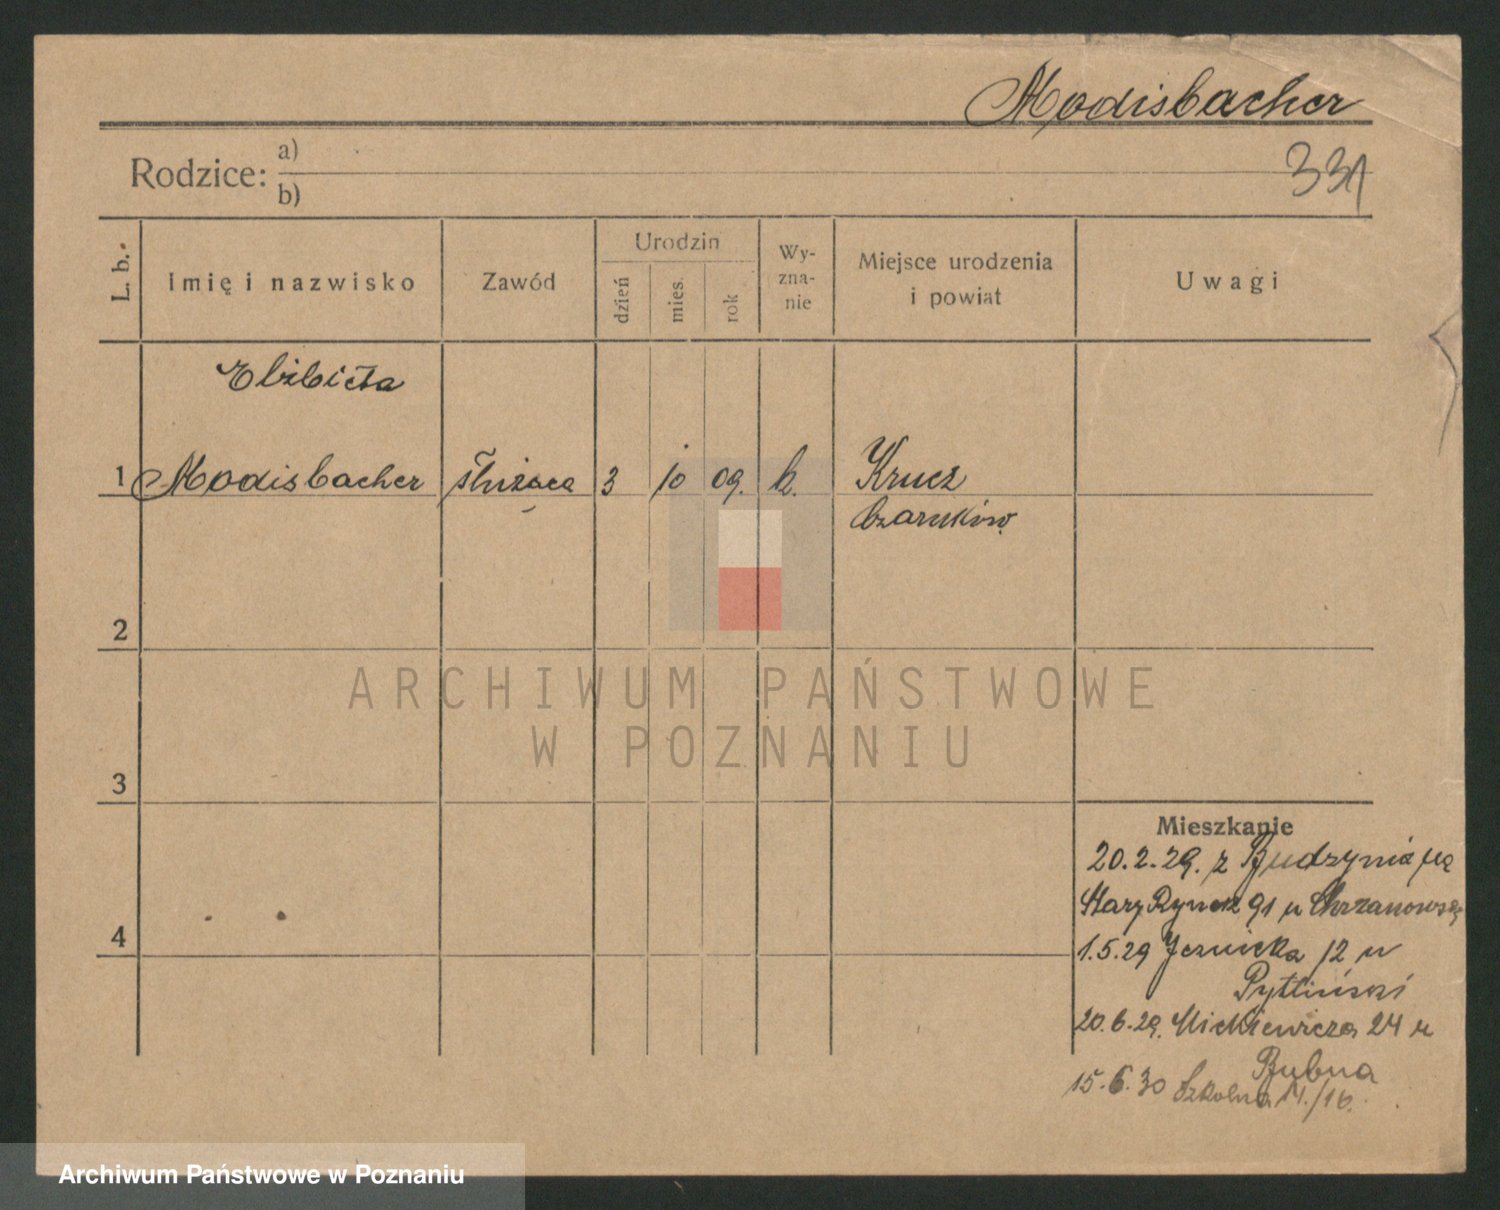 Modisbacher
331
Rodzice: a)
b)
L. b.
Imię i nazwisko
Zawód
Urodzin
dzień
mies.
rok
Wy-
zna-
nie
Miejsce urodzenia
i powiat
Uwagi
Elżbieta
1 Modisbacher służąca 3 10 09. k. Krucz
Czarnków.
2
ARCHIWUM PAŃSTWOWE
W POZNANIU
3
Mieszkanie
20.2.29. z Budzynia na
Stary Rynek 91 u Chrzanowsk
4
1.5.29 Jezuicka 12 u
Pytliński
20.6.29. Mickiewicza 24 u
Bubna
15.6.30 Szkolna 14./16.
Archiwum Państwowe w Poznaniu